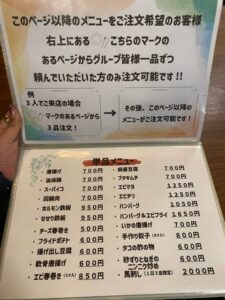 このページ以降のメニューをご注文希望のお客様
右上にある こちらのマークの
あるページからグループ皆様一品ずつ
頼んでいただいた方のみ注文可能です!!
例
3人でご来店の場合
マークのあるページから
3品注文!
その後、このページ以降の
メニューがご注文可能です!
単品メニュー
・唐揚げ 700円
・油淋鶏 700円
・スーパイコ 700円
・回鍋肉 700円
・ホルモン鉄板 950円
・せせり鉄板 950円
・チーズ春巻き 500円
・フライドポテト 600円
・揚げ出し豆腐 600円
・軟骨唐揚げ 600円
・エビ春巻き 850円
・麻婆豆腐 700円
・ブタキムチ 700円
・エビマヨ 1250円
・エビチリ 1250円
・ハンバーグ 1250円
・ハンバーグ&エビフライ 1650円
・いかの唐揚げ 700円
・手作り餃子 800円
・タコの酢の物 600円
・砂ずりとねぎの
ニンニク炒め 600円
・馬刺し 2000円